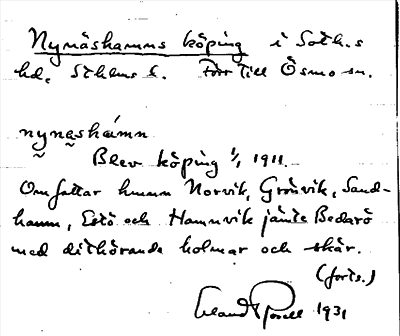 Nynäshamns köping i Soth.s
hd, Sthlms l. Förr till Ösmo sn.
nynashámn
Blev köping 1/1 1911.
Omfattar hmmn Norvik, Grönvik, Sand-
hamn, Estö och Hamnvik jämte Bedarö
med dithörande holmar och skär.
(forts.)
1931